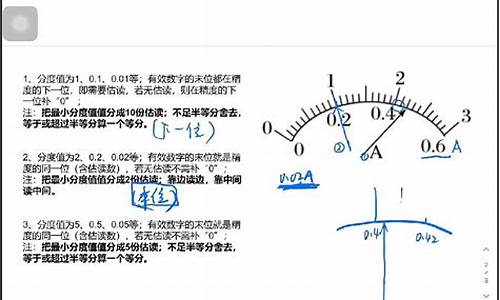 1、分度值为1、0.1、0.01等;有效数字的末位都在精
度的下一位,即需要估读,若无估读,则在精度的下
一位补“0”;
注:把最小分度值分成10份估读;不足半等分舍去,
等于或超过半等分算一个等分。
(下一位)
2、分度值为2、0.2、0.02等;有效数字的末位就是精
度的同一位(含估读数),若无估读不需补“0”;
注:把最小分度值值分成2份估读;靠边读边,靠中间
读中间。
(本位)
3、分度值为5、0.5、0.05等;有效数字的末位就是精
度的同一位(含估读数),若无估读不需补“0”;
注:把最小分度值值分成5份估读;不足半等分舍去,
等于或超过半等分算一个等分。
0 1 2 3
0 0.2 0.4 0.6 A
② A
0.02A
0.4 0.42
2
3